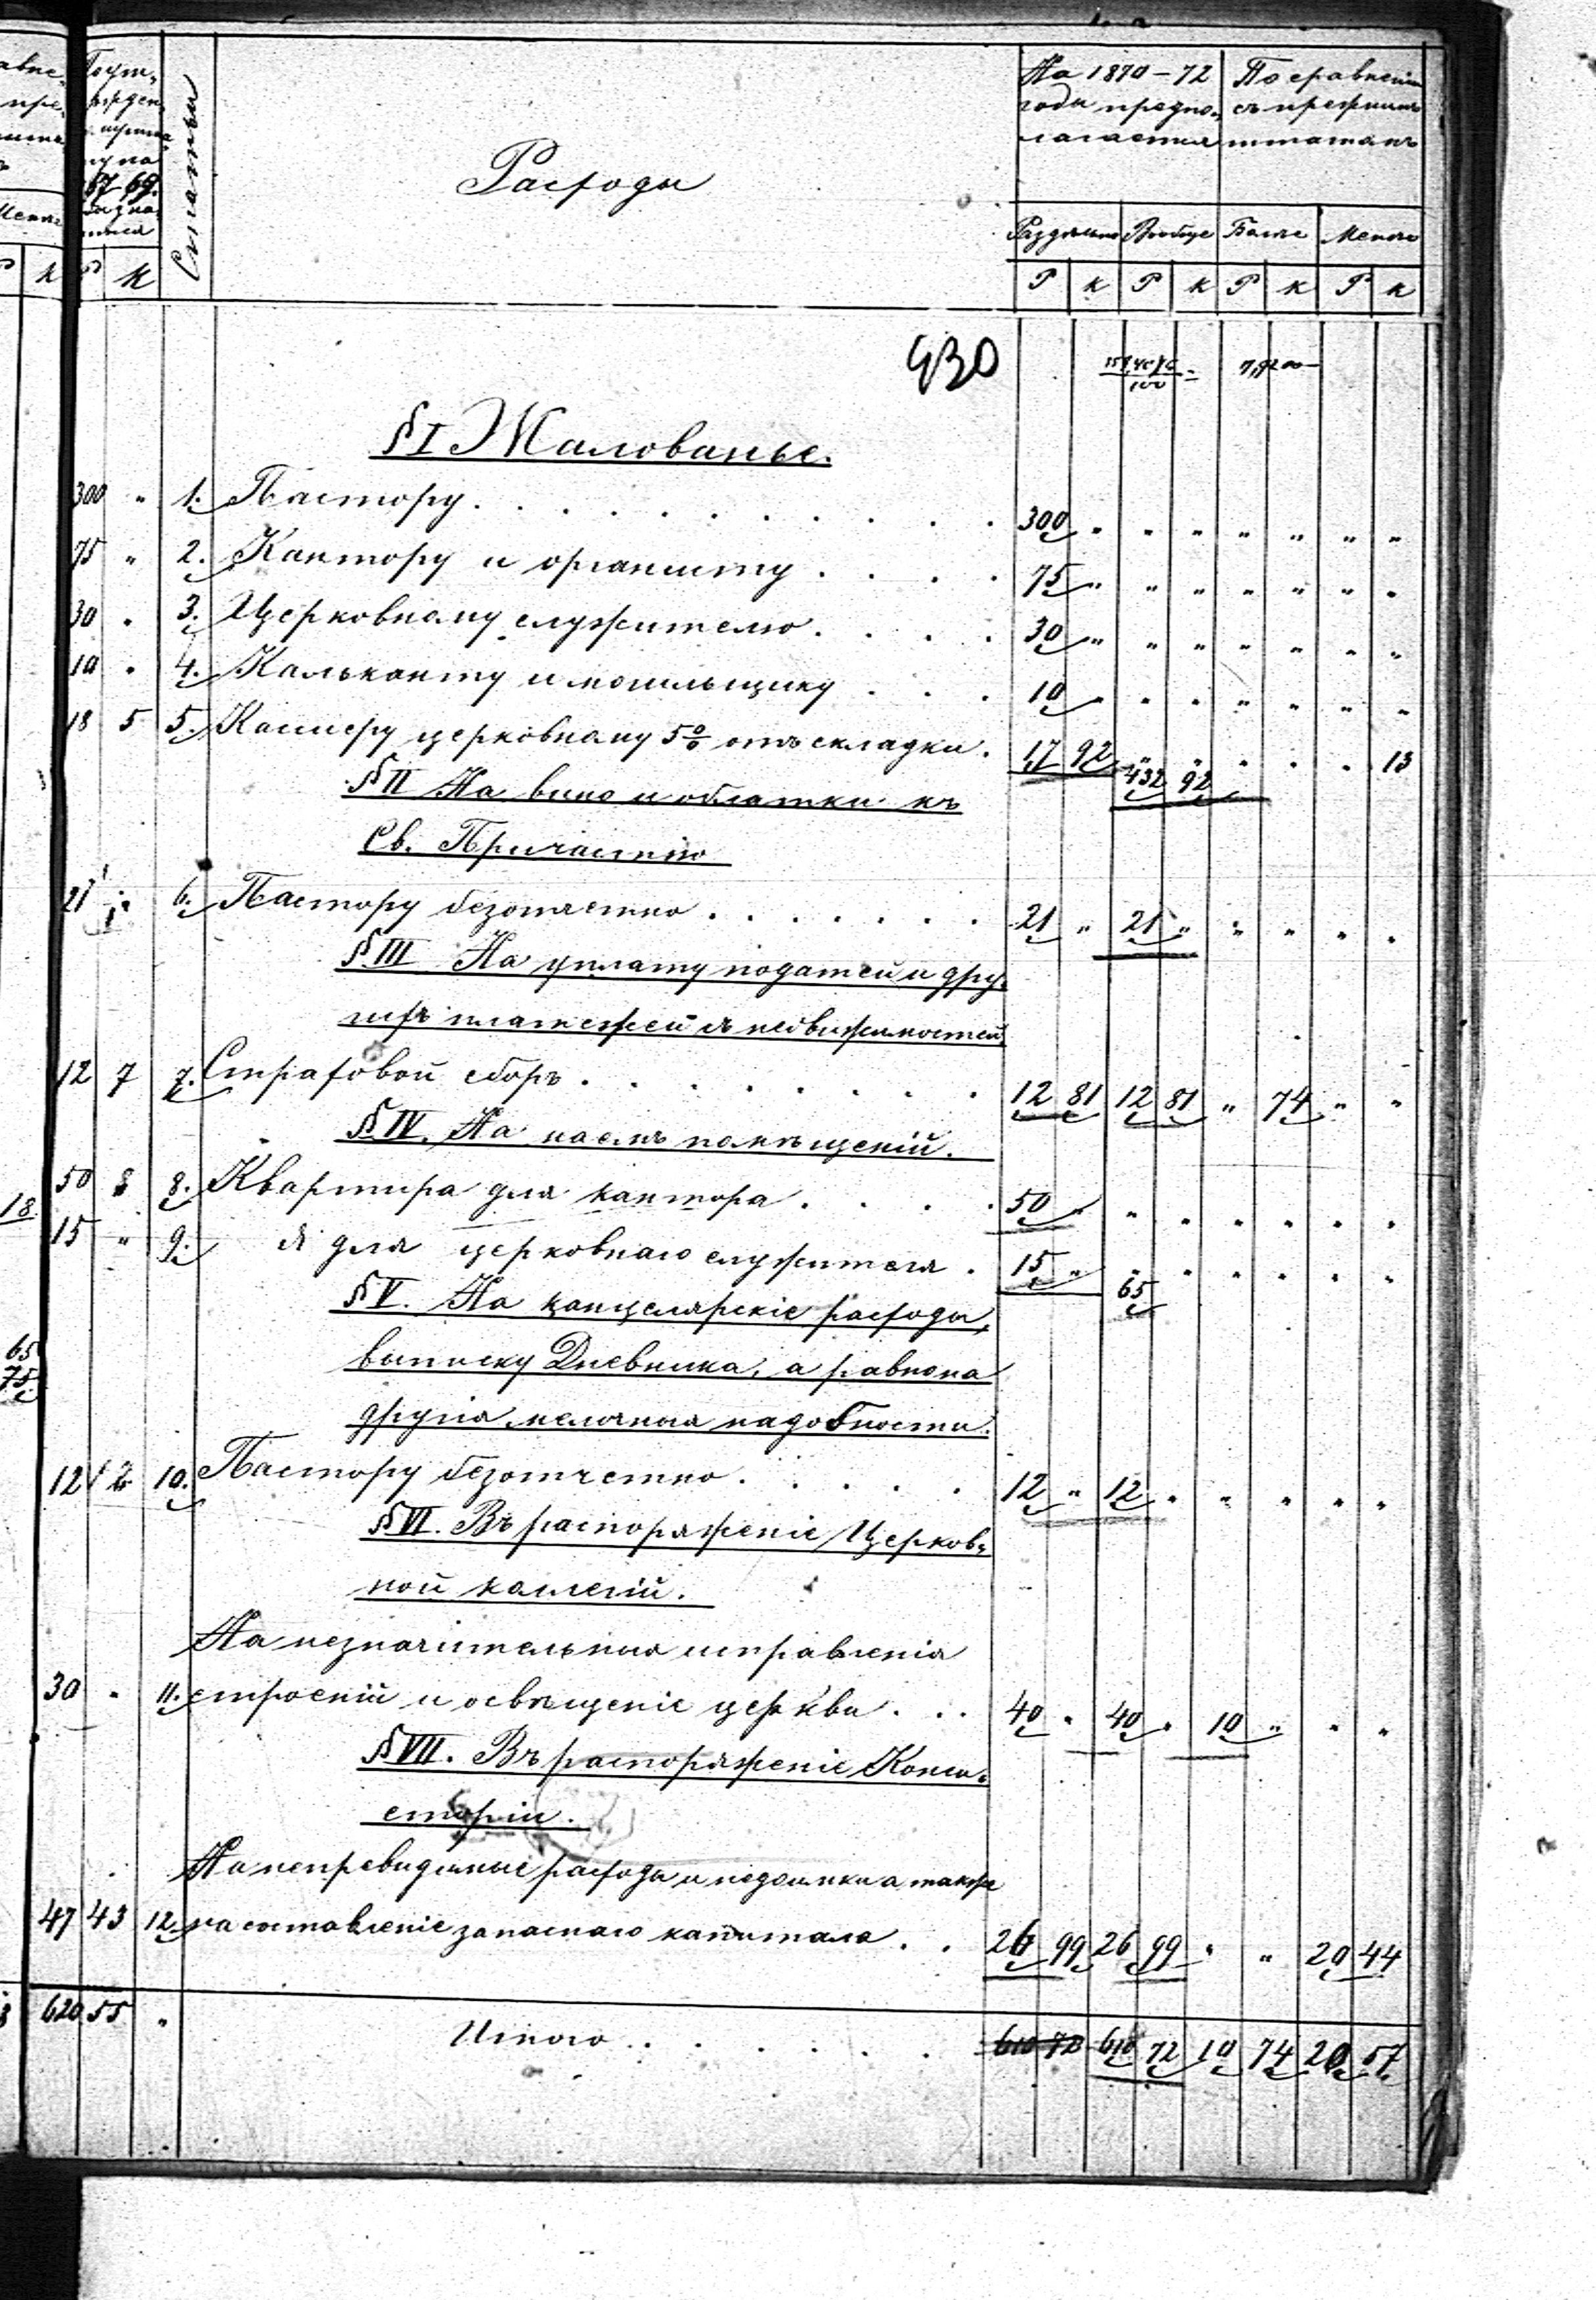 На 1870–72 По сравненію
года предпо- съ прежнимъ
лагается штатомъ
Статьи
Расходы
67 69.
Раздѣльно Вообще Болѣе Менѣе
К Р К Р К Р К Р К Р К
430
§ I Жалованье.
300 " 1. Пастору . . . . . . . . . . 300 " " " " " " "
75 " 2. Кантору и органисту . . . . 75 " " " " " " "
30 " 3. Церковному служителю . . . . 30 " " " " " " "
10 " 4. Кальканту и могильщику . . . 10 " " " " " " "
18 5 5. Кассиру церковному 5% отъ складки . 17 92 " " " " " 13
432 92
§ II На вино и облатки къ
Св. Причастію
21 " 6. Пастору безотчетно . . . . . . . 21 " 21 " " " " "
§ III На уплату податей и дру-
гихъ платежей съ недвижимостей.
12 7 7. Страховой сборъ . . . . . . . . 12 81 12 81 " 74 " "
§ IV. На наемъ помѣщеній.
50 8. Квартира для кантора . . . . 50 " " " " " " "
18
15 " 9. И для церковнаго служителя . 15 " " " " " " "
65
§ V. На канцелярскіе расходы,
выписку Дневника, а равно на
другія мелочныя надобности.
65
75
12 10. Пастору безотчетно . . . . . 12 " 12 " " " " "
§ VI. Въ распоряженіе Церков-
ной коллегіи.
На незначительныя исправленія
30 " 11. строеній и освѣщеніе церкви . . . 40 " 40 " 10 " " "
§ VII. Въ распоряженіе Конси-
сторіи.
На непредвидимые расходы и недоимки а также
47 43 12. на составленіе запаснаго капитала . . 26 99 26 99 " " 20 44
620 55 " Итого . . . . . . . 610 72 610 72 10 74 20 57